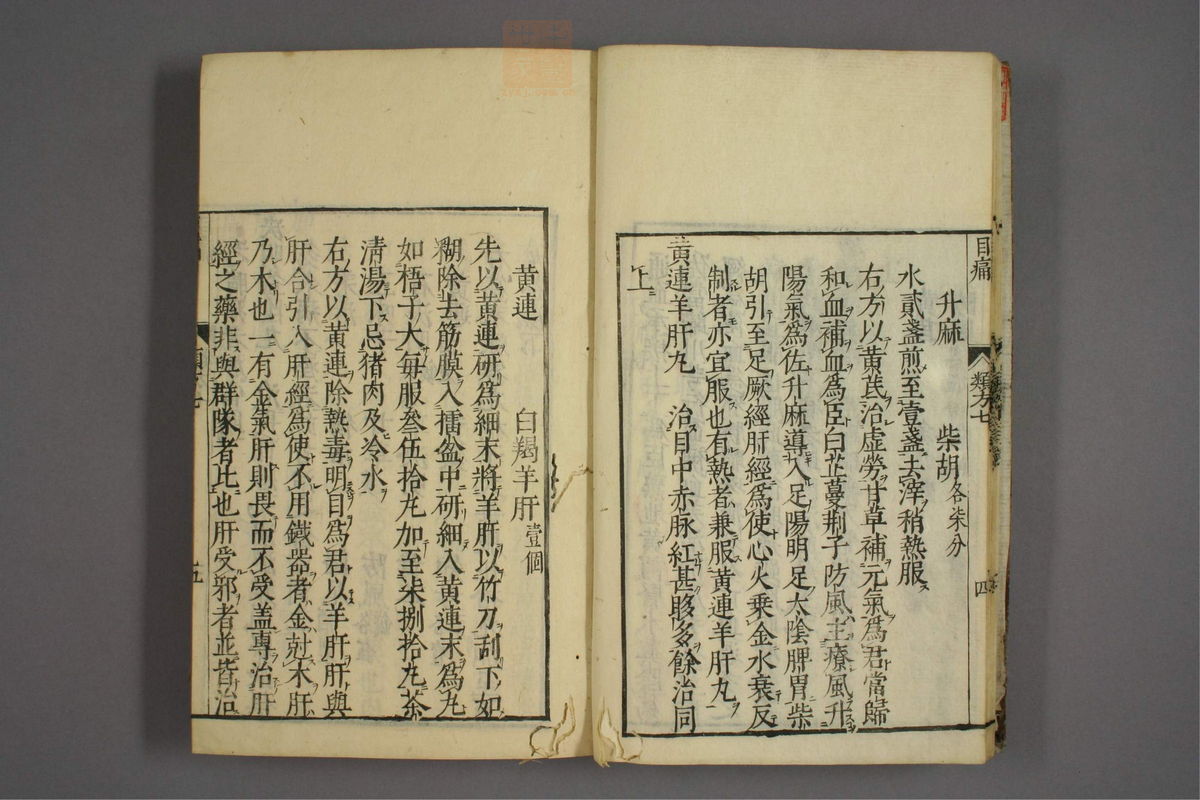 目痛
類方七
四
升麻　柴胡各柒分
水貳盞煎至壹盞去滓稍熱服
右方以黄芪治虛勞甘草補元氣爲君當歸
和血補血爲臣白芷蔓荆子防風主療風升
陽氣爲佐升麻導入足陽明足太陰脾胃柴
胡引至足厥經肝經爲使心火乘金水衰反
制者亦宜服也有熱者兼服黄連羊肝丸
黄連羊肝丸　治目中赤脉紅甚眵多餘治同
上
黄連　白羯羊肝壹個
先以黄連研爲細末將羊肝以竹刀刮下如
糊除去筋膜入擂盆中研細入黄連末爲丸
如梧子大每服叁伍拾丸加至柒捌拾丸茶
清湯下忌猪肉及冷水
右方以黄連除熱毒明目爲君以羊肝肝與
肝合引入肝經爲使不用鐵器者金尅木肝
乃木也一有金氣肝則畏而不受盖專治肝
經之藥非與群隊者比也肝受邪者並皆治
五